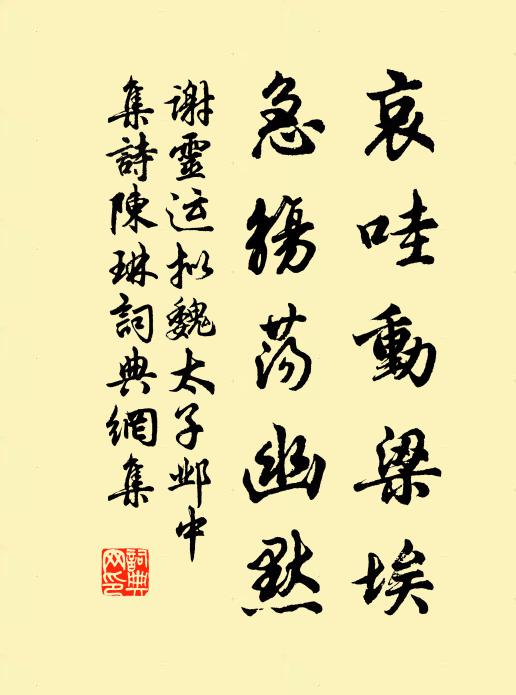 哀哇動梁埃
急觴荡幽默
谢靈运拟魏太子邺中
集詩陳琳詞典網集
詞典網印